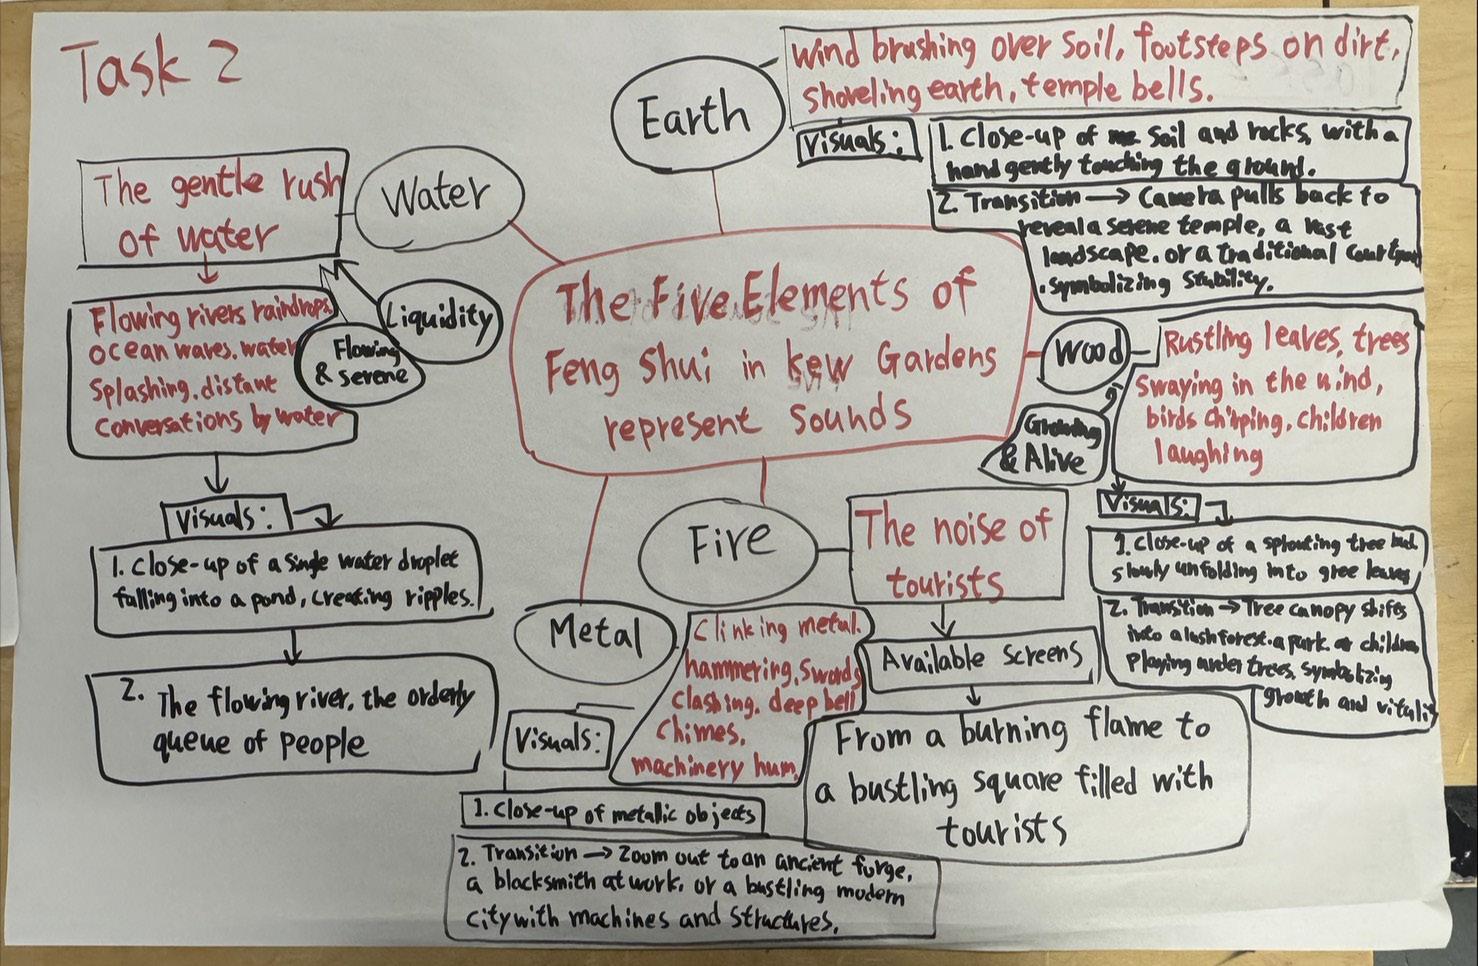 Task 2
The Five Elements of
Feng Shui in kew Gardens
represent sounds
Water
The gentle rush
of water
Flowing rivers raindrops,
ocean waves, water
Splashing, distant
conversations by water
Liquidity
Flowing
& serene
Visuals:
1. Close-up of a single water droplet
falling into a pond, creating ripples.
2. The flowing river, the orderly
queue of people
Earth
Wind brushing over soil, footsteps on dirt,
shoveling earth, temple bells.
Visuals:
1. Close-up of soil and rocks, with a
hand gently touching the ground.
2. Transition → Camera pulls back to
reveal a serene temple, a vast
landscape, or a traditional
symbolizing stability.
Wood
Rustling leaves, trees
Swaying in the wind,
birds chirping, children
laughing
Growing
& Alive
Visuals:
1. Close-up of a sprouting tree bud
slowly unfolding into gree leaves
2. Transition → Tree canopy shifts
into a lush forest, a park, or children
Playing under trees, symbolizing
growth and vitality
Fire
The noise of
tourists
Available Screens
From a burning flame to
a bustling square filled with
tourists
Metal
Clinking metal,
hammering, swords
clashing, deep bell
chimes,
machinery hum,
Visuals:
1. Close-up of metallic objects
2. Transition → Zoom out to an ancient forge,
a blacksmith at work, or a bustling modern
city with machines and structures.